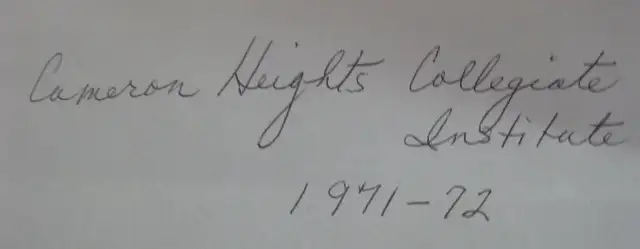 Cameron Heights Collegiate
Institute
1971-72